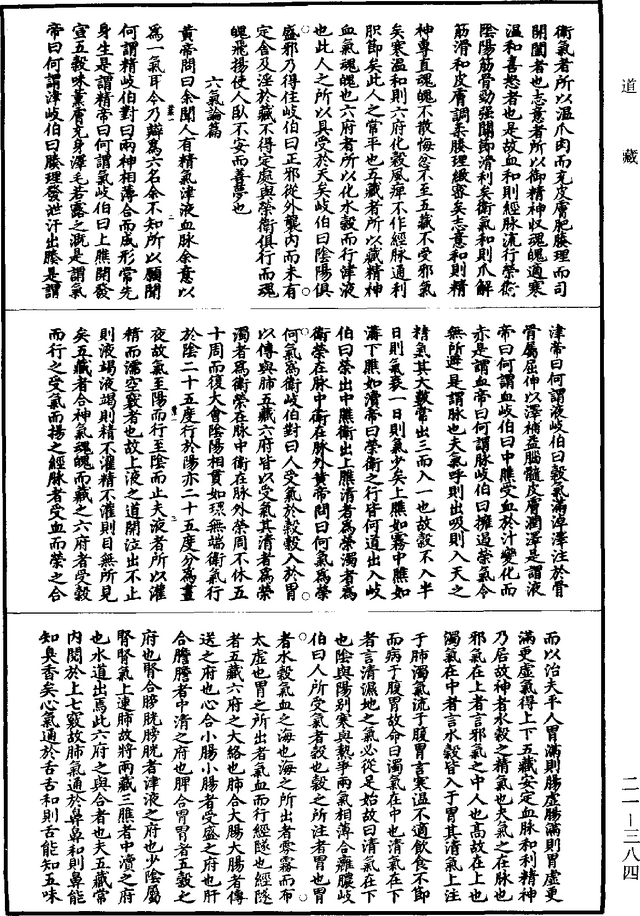 道藏
衛氣者所以溫爪肉而充皮膚肥腠理而司
開闔者也志意者所以御精神收魂魄適寒
溫和喜怒者也是故血和則經脉流行榮衛
陰陽筋骨勁强關節滑利矣衛氣和則爪解
筋滑和皮膚調柔腠理緻密矣志意和則精
神專直魂魄不散悔忿不至五藏不受邪氣
矣寒溫和則六府化穀風痺不作經脉通利
職節矣此人之常平也五藏者所以藏精神
血氣魂魄也六府者所以化水穀而行津液
也此人之所以具受於天矣岐伯曰陰陽俱
盛邪乃得往岐伯曰正邪從外襲內而未有
定舍及淫於藏不得定處與榮衛俱行而魂
魄飛揚使人臥不安而善夢也
六氣論篇
黃帝問曰余聞人有精氣津液血脉余意以
為一氣耳今乃辯為六名余不知所以願聞
何謂精岐伯對曰兩神相薄合而成形常先
身生是謂精帝曰何謂氣岐伯曰上膲開發
宣五穀味薰膚充身澤毛若霧之溉是謂氣
帝曰何謂津岐伯曰腠理發泄汗出腠是謂
津帝曰何謂液岐伯曰穀氣滿淖澤注於骨
骨屬屈伸以澤補益腦髓皮膚潤澤是謂液
帝曰何謂血岐伯曰中膲受血於汁變化而
赤是謂血帝曰何謂脉岐伯曰擁遏榮氣令
無所避是謂脉也夫氣呼則出吸則入天之
精氣其大數常出三而入一也故穀不入半
日則氣衰一日則氣少矣上膲如霧中膲如
漚下膲如瀆帝曰榮衛之行皆何道出入岐
伯曰榮出中膲衛出上膲清者為榮濁者為
衛榮在脉中衛在脉外黃帝問曰何氣為榮
何氣為衛岐伯對曰人受氣於穀穀入於胃
以傳與肺五藏六府皆以受氣其清者為榮
濁者為衛榮在脉中衛在脉外榮周不休五
十周而復大會陰陽相貫如環無端衛氣行
於陰二十五度行於陽亦二十五度分為晝
夜故氣至陽而行至陰而止夫液者所以灌
精而濡空竅者也故上液之道開泣出不止
則液竭液竭則精不灌精不灌則目無所見
矣五藏者合神氣魂魄而藏之六府者受穀
而行之受氣而揚之經脉者受血而榮之合
而以治夫平人胃滿則腸虛腸滿則胃虛更
滿更虛氣得上下五藏安定血脉和利精神
乃居故神者水穀之精氣也夫氣之在脉也
邪氣在上者言邪氣之中人也高故在上也
濁氣在中者言水穀皆入于胃其清氣上注
于肺濁氣流于腹胃言寒溫不適飲食不節
而病于腹胃故命曰濁氣在中也清氣在下
者言清濕地之氣必從足始故曰清氣在下
也陰與陽別寒與熱爭兩氣相薄合癰膿岐
伯曰人所受氣者穀也穀之所注者胃也胃
者水穀氣血之海也海之所出者雲霧而布
太虛也胃之所出者氣血而行經隧也經隧
者五藏六府之大絡也肺合大腸大腸者傳
送之府也心合小腸小腸者受盛之府也肝
合膽膽者中清之府也脾合胃胃者五穀之
府也腎合膀胱膀胱者津液之府也少陰屬
腎腎氣上連肺故將兩藏三膲者中瀆之府
也水道出焉此六府之與合者也夫五藏常
內閱於上七竅故肺氣通於鼻鼻和則鼻能
知臭香矣心氣通於舌舌和則舌能知五味
二一—三八四